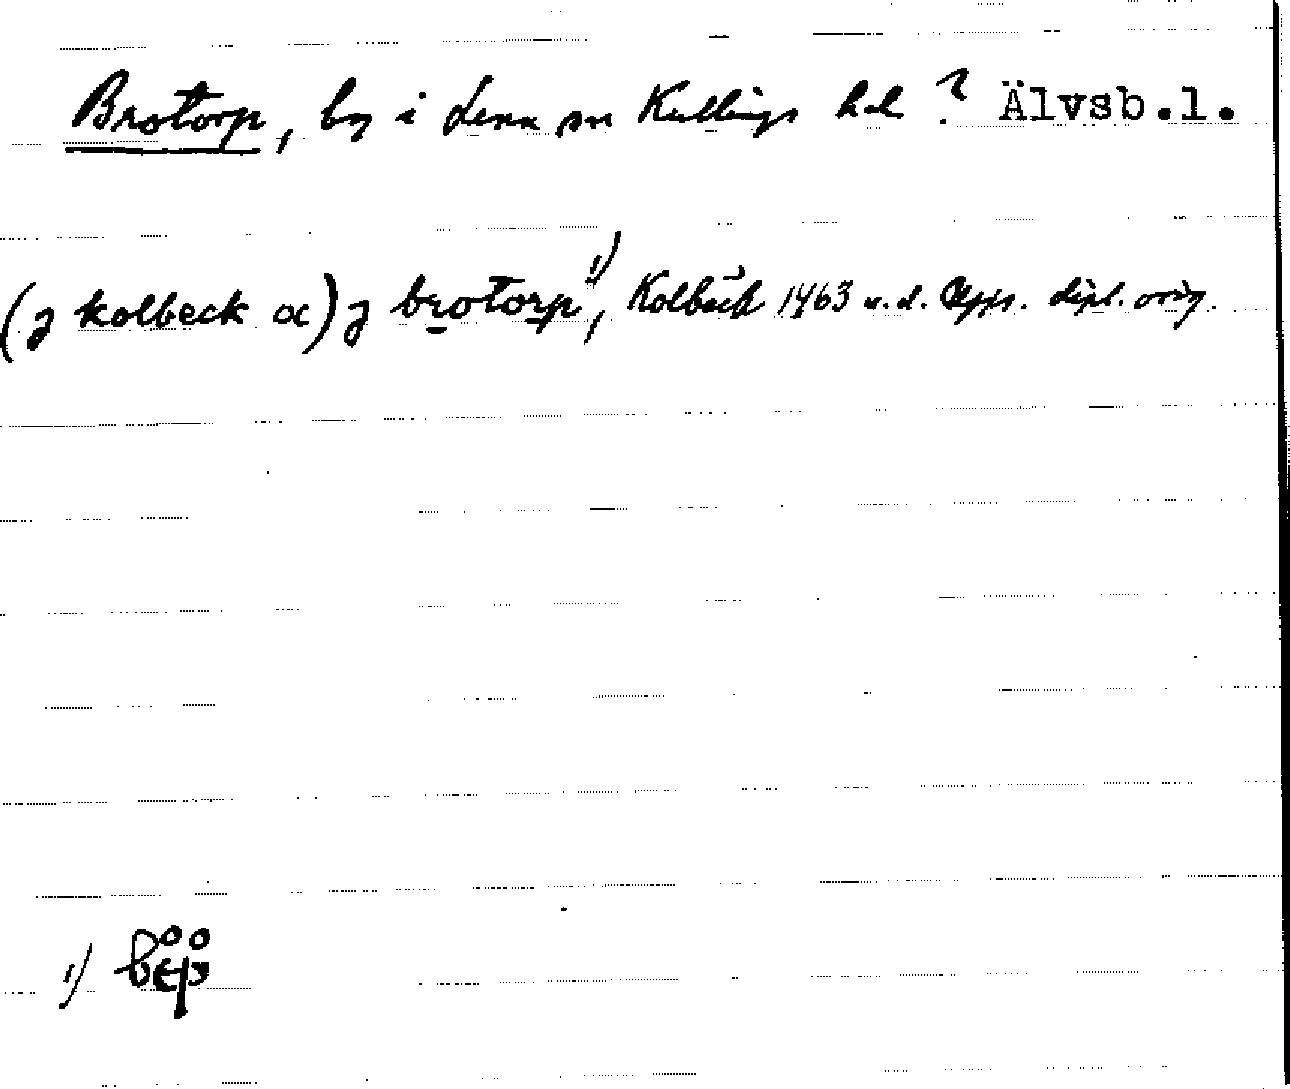 Brotorp, by i Lena sn Kullings hd ? Älvsb.l.
(j kolbeck oc) j brotorp 1), Kolbäck 1463 u.d. Upps. dipl. orig.
1)